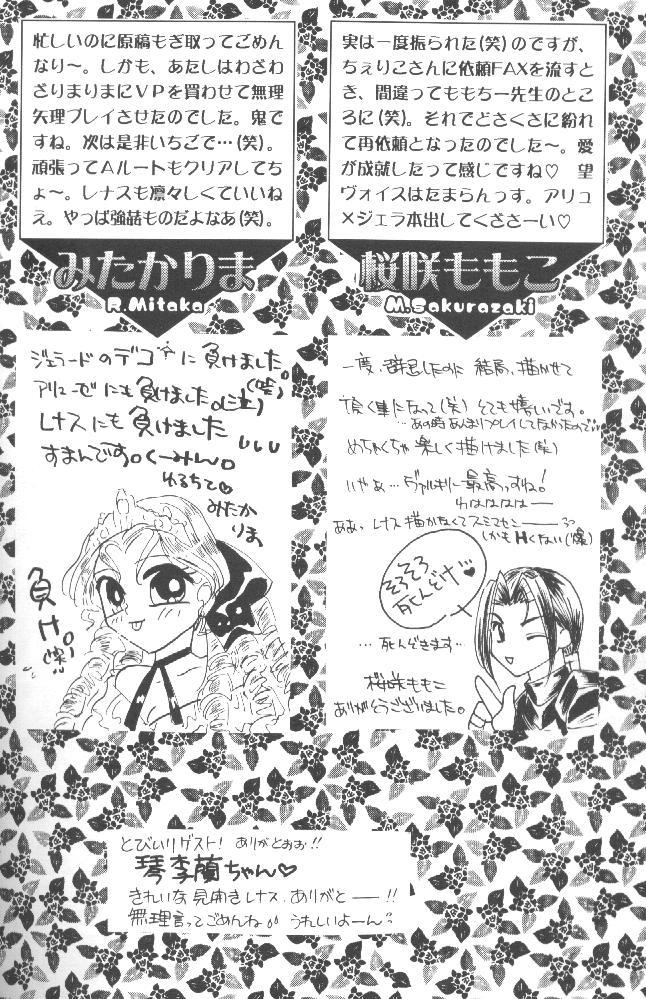 忙しいのに原稿もぎ取ってごめん
なり〜。しかも、あたしはわざわ
ざりまりまにＶＰを買わせて無理
矢理プレイさせたのでした。鬼で
すね。次は是非いちごで…(笑)。
頑張ってＡルートもクリアしてち
ょ〜。レナスも凛々しくていいね
え。やっぱ強姦ものだよなあ(笑)。
みたかりま
R.Mitaka
ジェラードのデコに負けました。
アリューゼにも負けました。(泣)
レナスにも負けました
すまんです。くーみん。
ゆるちて♡
みたか
りま
負け。
実は一度振られた(笑)のですが、
ちぇりこさんに依頼FAXを流すと
き、間違ってももちー先生のとこ
ろに(笑)。それでどさくさに紛れ
て再依頼となったのでした〜。愛
が成就したって感じですね♡　望
ヴォイスはたまらんっす。アリュ
×ジェラ本出してくださーい♡
桜咲ももこ
M.Sakurazaki
一度、辞退したのに 結局、描かせて
頂く事になって(笑) とても嬉しいです。
…あの時あんまりプレイしてなかったので…
めちゃくちゃ楽しく描けました(笑)
いやぁ…ヴァルキリに最高っすね!
わはははは―
ああ、レナス描かなくてスミマセン――
しかもHくない(爆)
そろそろ
死んどけ♥
…死んどきます…
桜咲ももこ
ありがとうございました。
とびいりゲスト! ありがとおお!!
琴李蘭ちゃん♡
きれいな見開きレナス、ありがと――!!
無理言ってごめんね うれしいよーん